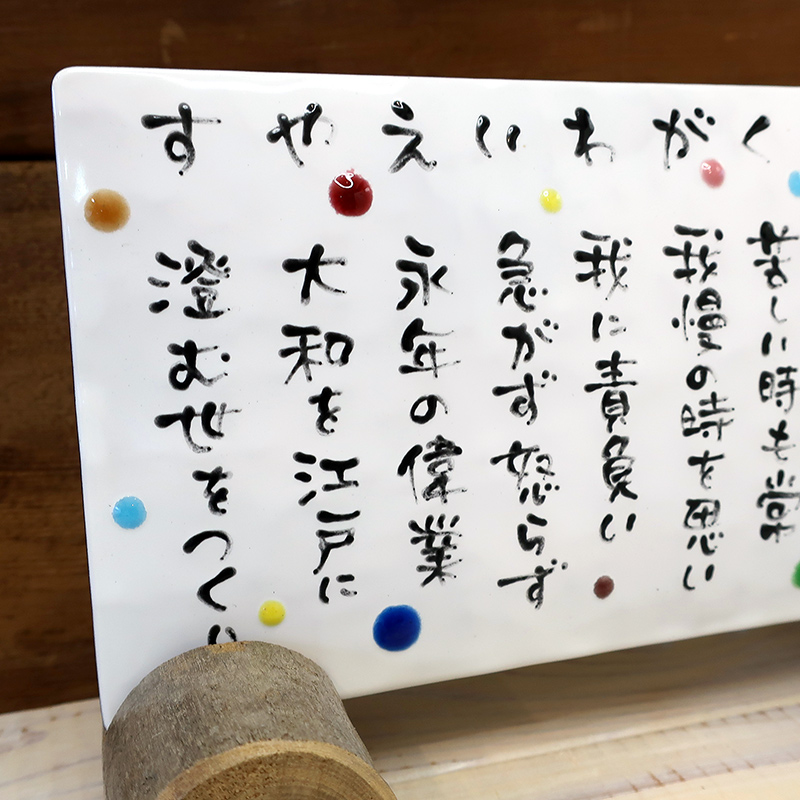 く
苦しい時も常
が
我慢の時を思い
わ
我に責負い
い
急がず怒らず
え
永年の偉業
や
大和を江戸に
す
澄む世をつく